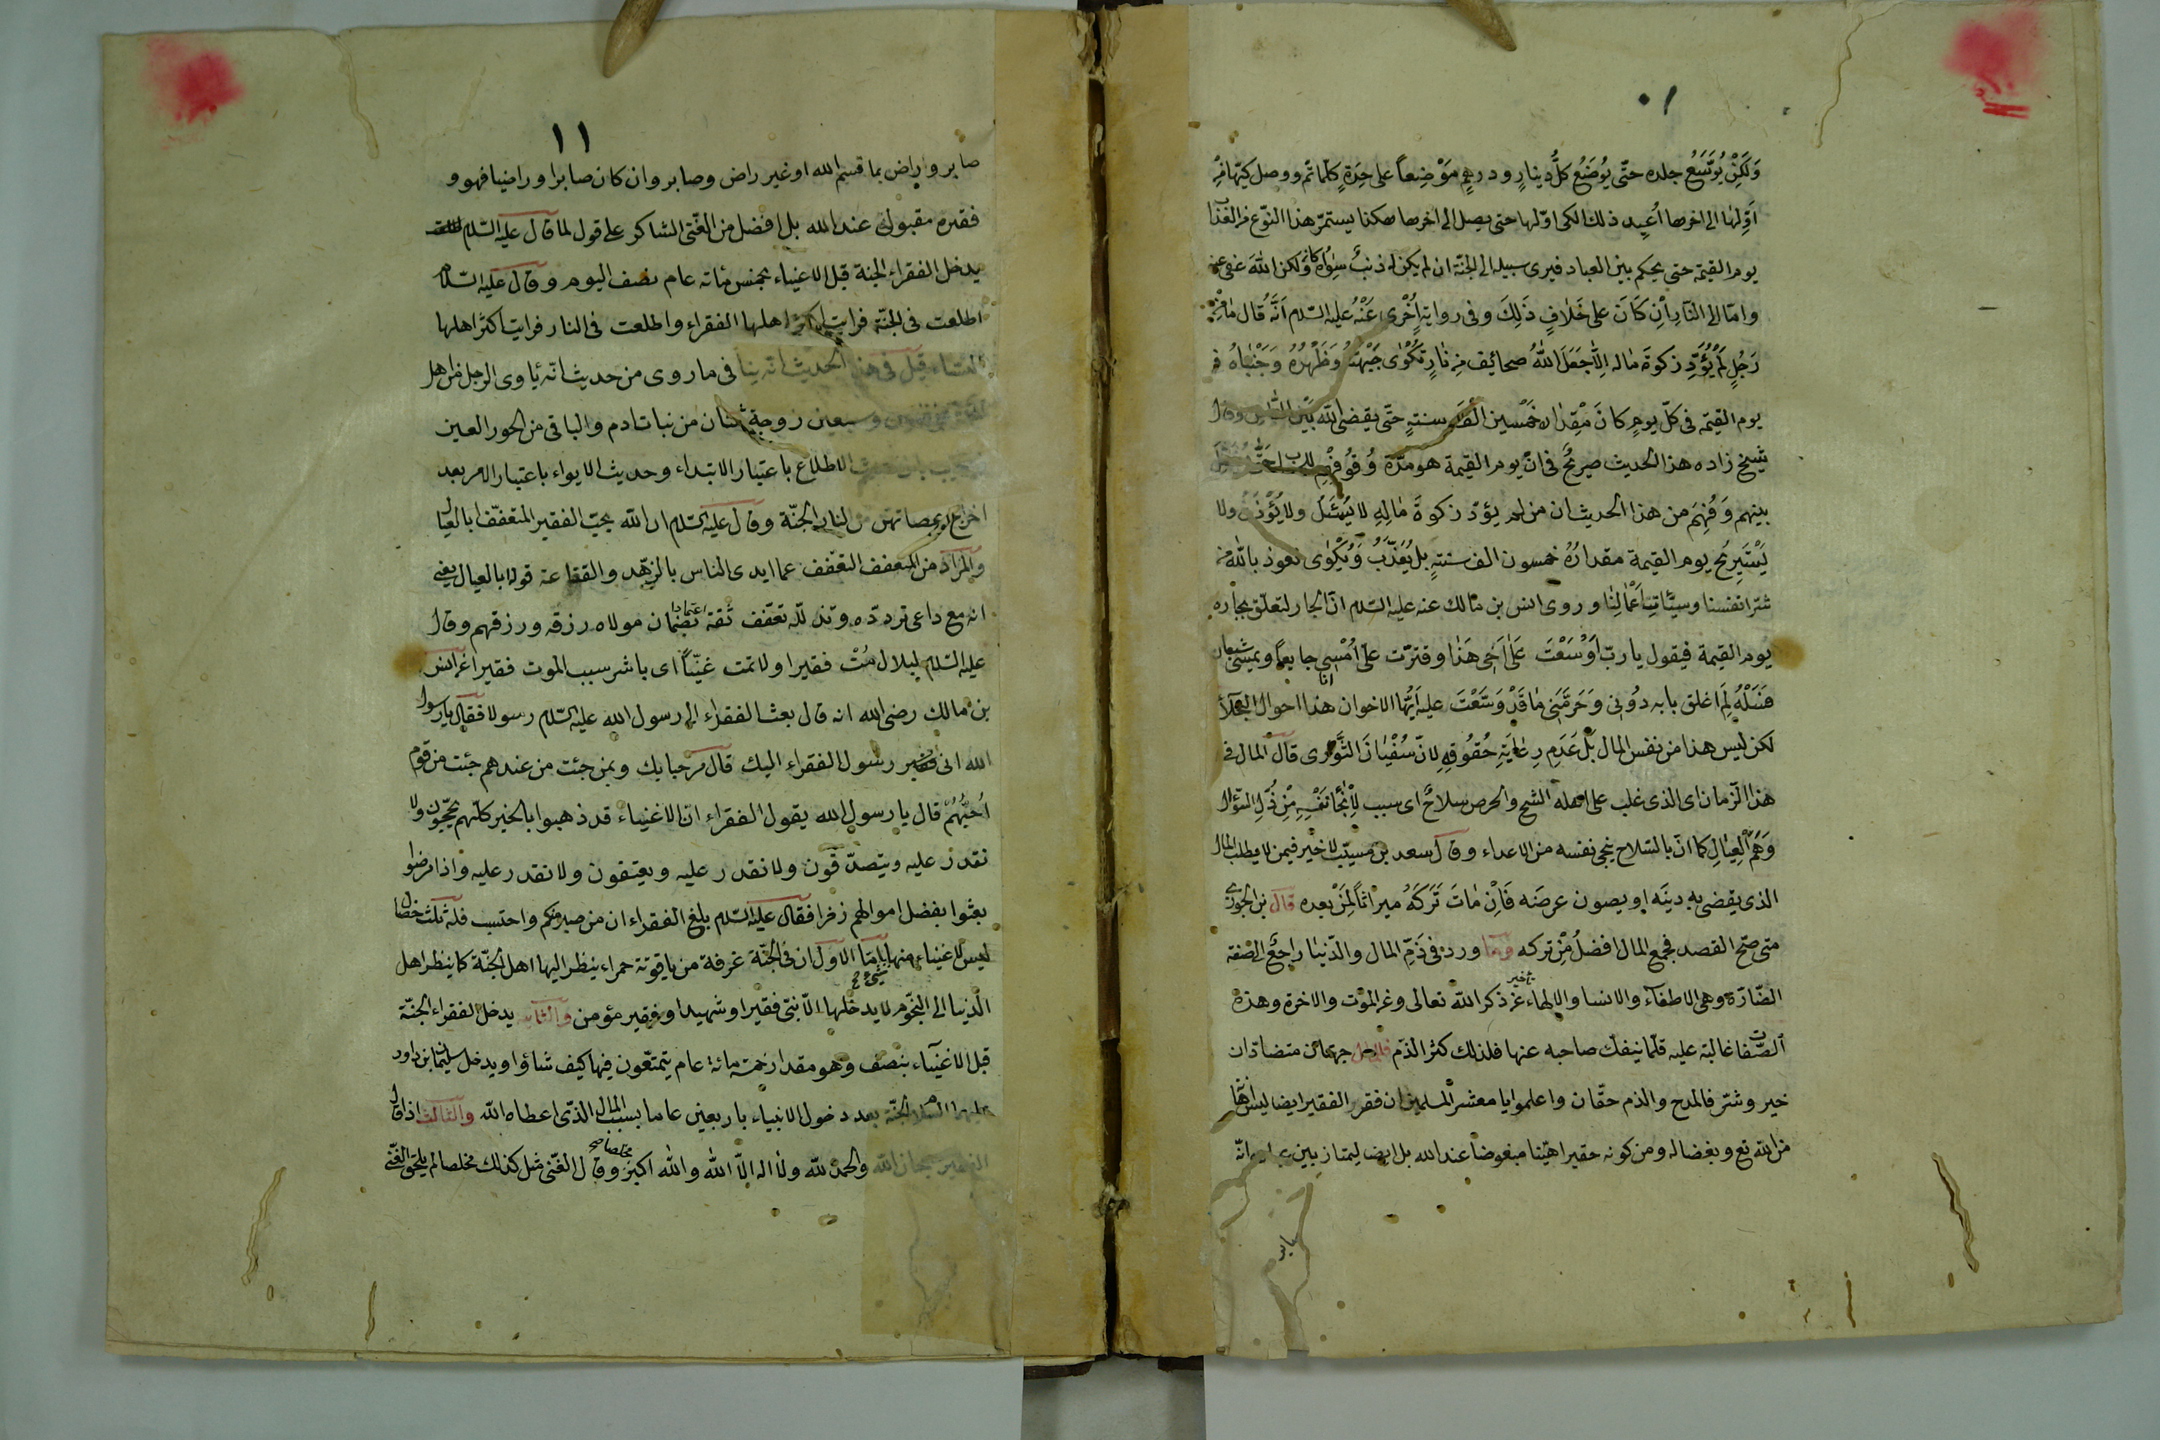 ١٠
وَلَكِنْ يُوَسَّعُ جلده حتّى يُوضَعُ كلُّ دينارٍ ودرهمٍ مَوْضِعاً على حِدَةٍ كلّما تمّ ووصل كيّها مِنْ
اَوِّلها الى اخرها اُعيد ذلك الكى اوّلها حتى يصل الى اخرها هكذا يستمرّ هذا النّوع من العَذَاب
يوم القيمة حتى يحكم بين العباد فيرى سبيله الى الجنّة ان لم يكن له ذنبٌ سِوَاهُ كانَ ولكن اللهَ عفى عنه
وامّا الى النّار اِنْ كَانَ على خَلافِ ذَلِكَ وفى رواية اُخْرى عَنْهُ عليه السّلام اَنَّهُ قال مَا مِنْ
رَجُلٍ لَمْ يُؤَدِّ زكوةَ ماله اِلَّا جَعَلَ اللهُ صحائف مِنْ نارٍ تُكْوَى جَبْهَتُهُ وَظَهْرُهُ وَجَنْبَاهُ فى
يوم القيمة فى كلّ يومٍ كانَ مِقْدَارُه خَمْسين الْفَ سنةٍ حتّى يقضى الله بَيْنَ النّاسِ وقال
شيخ زاده هذا الحديث صريحٌ فى انّ يوم القيمة هو مدّة وُقُوفِهِمْ
بينهم وَفُهِمَ من هذا الحديث ان من لم يؤدّ زكوةَ مَالِهِ لا يُسْئَلُ ولا يُؤْذَنُ ولا
يَسْتَرِيحُ يوم القيمة مقدارُهُ خمسون الف سنةٍ بل يُعَذَّبُ وَيُكْوَى نعوذ بالله من
شرّ انفسنا وسيّئاتِ اَعْمَالِنَا وروى انس بن مالك عنه عليه السّلام انّ الجار لتعلّق بجاره
يوم القيمة فيقول يا ربّ اَوْسَعْتَ عَلَى اَخِى هَذَا وقترّت علىّ اُمْسِى جايعاً ويمسى شبعان
فَسَلْهُ لِمَ اغلق بابه دُونِى وَحَرَمَنِى مَا قَدْ وَسَّعْتَ عليه اَيُّهَا الاخوان هذا احوال البخلاء
لكن ليس هذا من نفس المال بل عَدَمِ رِعَايَةِ حُقُوقِهِ لانّ سُفْيَانَ الثَّوْرى قال المال فى
هذا الزّمان اى الذى غلب على اهله الشح والحرص سلاحٌ اى سبب لِاِنْجَاءِ نَفْسِهِ مِنْ ذُلِّ السّؤال
وَهَمِّ الْعِيَالِ كما انّ بالسّلاح ينجى نفسه من الاعداء وقال سعد بن مسيّب لا خير فيمن لا يطلب المال
الذى يقضى به دينَه او يصون عرضَه فَاِنْ مَاتَ تَرَكَهُ ميراثاً لِمَنْ بعده قال ابن الجوزى
متى صحّ القصد فجمع المال افضلُ مِنْ تركه وما ورد فى ذَمِّ المال والدّنيا راجعٌ الى الصّفة
الضّارّة وهى الاطغاء والانسا والالهاء عن ذكر الله تعالى وعن الموت والاخرة وهذه
الصّفات غالبة عليه قلّما ينفك صاحبه عنها فلذلك كثر الذّم فالمال جهتان متضادّتان
خير وشرّ فالمدح والذم حقّان واعلموا يا معشر المسلمين ان فقر الفقير ايضا ليس
من الله تع وبغضا له ومن كونه حقيرا هيّنا مبغوضا عند الله بل ايضا ليمتاز بين
صابر
١١
صابر وراض بما قسم الله او غير راض وصابر وان كان صابرا وراضيا فهو و
فقيره مقبول عند الله بل افضل من الغنّى الشاكر على قول لما قال عليه السّلام
يدخل الفقراء الجنة قبل الاغنياء بخمس مائة عام نصف اليوم وقال عليه السّلام
اطلعت فى الجنّة فرايت اكثر اهلها الفقراء واطلعت فى النار فرايت اكثر اهلها
النساء قيل فى هذا الحديث انه ينافى ما روى من حديث انّه ياوى الرجل من اهل
وسبعين زوجة ثنتان من نبات ادم والباقى من الحور العين
الاطلاع باعتبار الابتداء وحديث الايواء باعتبار الامر بعد
من النار الجنّة وقال عليه السّلام ان الله يحبّ الفقير المتعفّف ابا العيال
والمراد من المتعفف التعفّف عما ايدى الناس بالزهد والقناعة قوله ابا العيال يعنى
انه مع داعى تردده وتذلّله تعفّف ثقة اعتمادا بضمان مولاه رزقه ورزقهم وقال
عليه السّلام لبلال مُتْ فقيرا ولا تمت غنيّاً اى باشر سبب الموت فقيرا عن انس
بن مالك رضى الله انه قال بعث الفقراء الى رسول الله عليه السّلام رسولا فقال يا رسول
الله انى فقير رسول الفقراء اليك قال مرحبا بك وبمن جئت من عندهم جئت من قوم
اُحِبُّهُمْ قال يا رسول الله يقول الفقراء انّ الاغنياء قد ذهبوا بالخير كلّهم يحجّون ولا
نقدر عليه ويتصدّقون ولا نقدر عليه ويعتقون ولا نقدر عليه واذا مرضوا
بعثوا بفضل اموالهم زخرا فقال عليه السّلام بلغ الفقراء ان من صبر منكم واحتسب فله ثلث خصال
ليس للاغنياء منها شئ امّا الاوّل ان فى الجنّة غرفة من ياقوتة حمراء ينظر اليها اهل الجنّة كما ينظر اهل
الدّنيا الى النّجوم لا يدخلها الّا نبىّ فقير او شهيد او فقير مؤمن والثّانية يدخل الفقراء الجنّة
قبل الاغنياء بنصف وهو مقدار خمسمائة عام يتمتّعون فيها كيف شاؤا ويدخل سليمان بن داود
عليهما السلام الجنّة بعد دخول الانبياء باربعين عاما بسبب المال الذّى اعطاه الله والثّالث اذا قال
الفقير سبحان الله والحمد لله ولا اله الّا الله والله اكبر مخلصا صح وقال الغنّى مثل كذلك مخلصا لم يلحق الغنّى